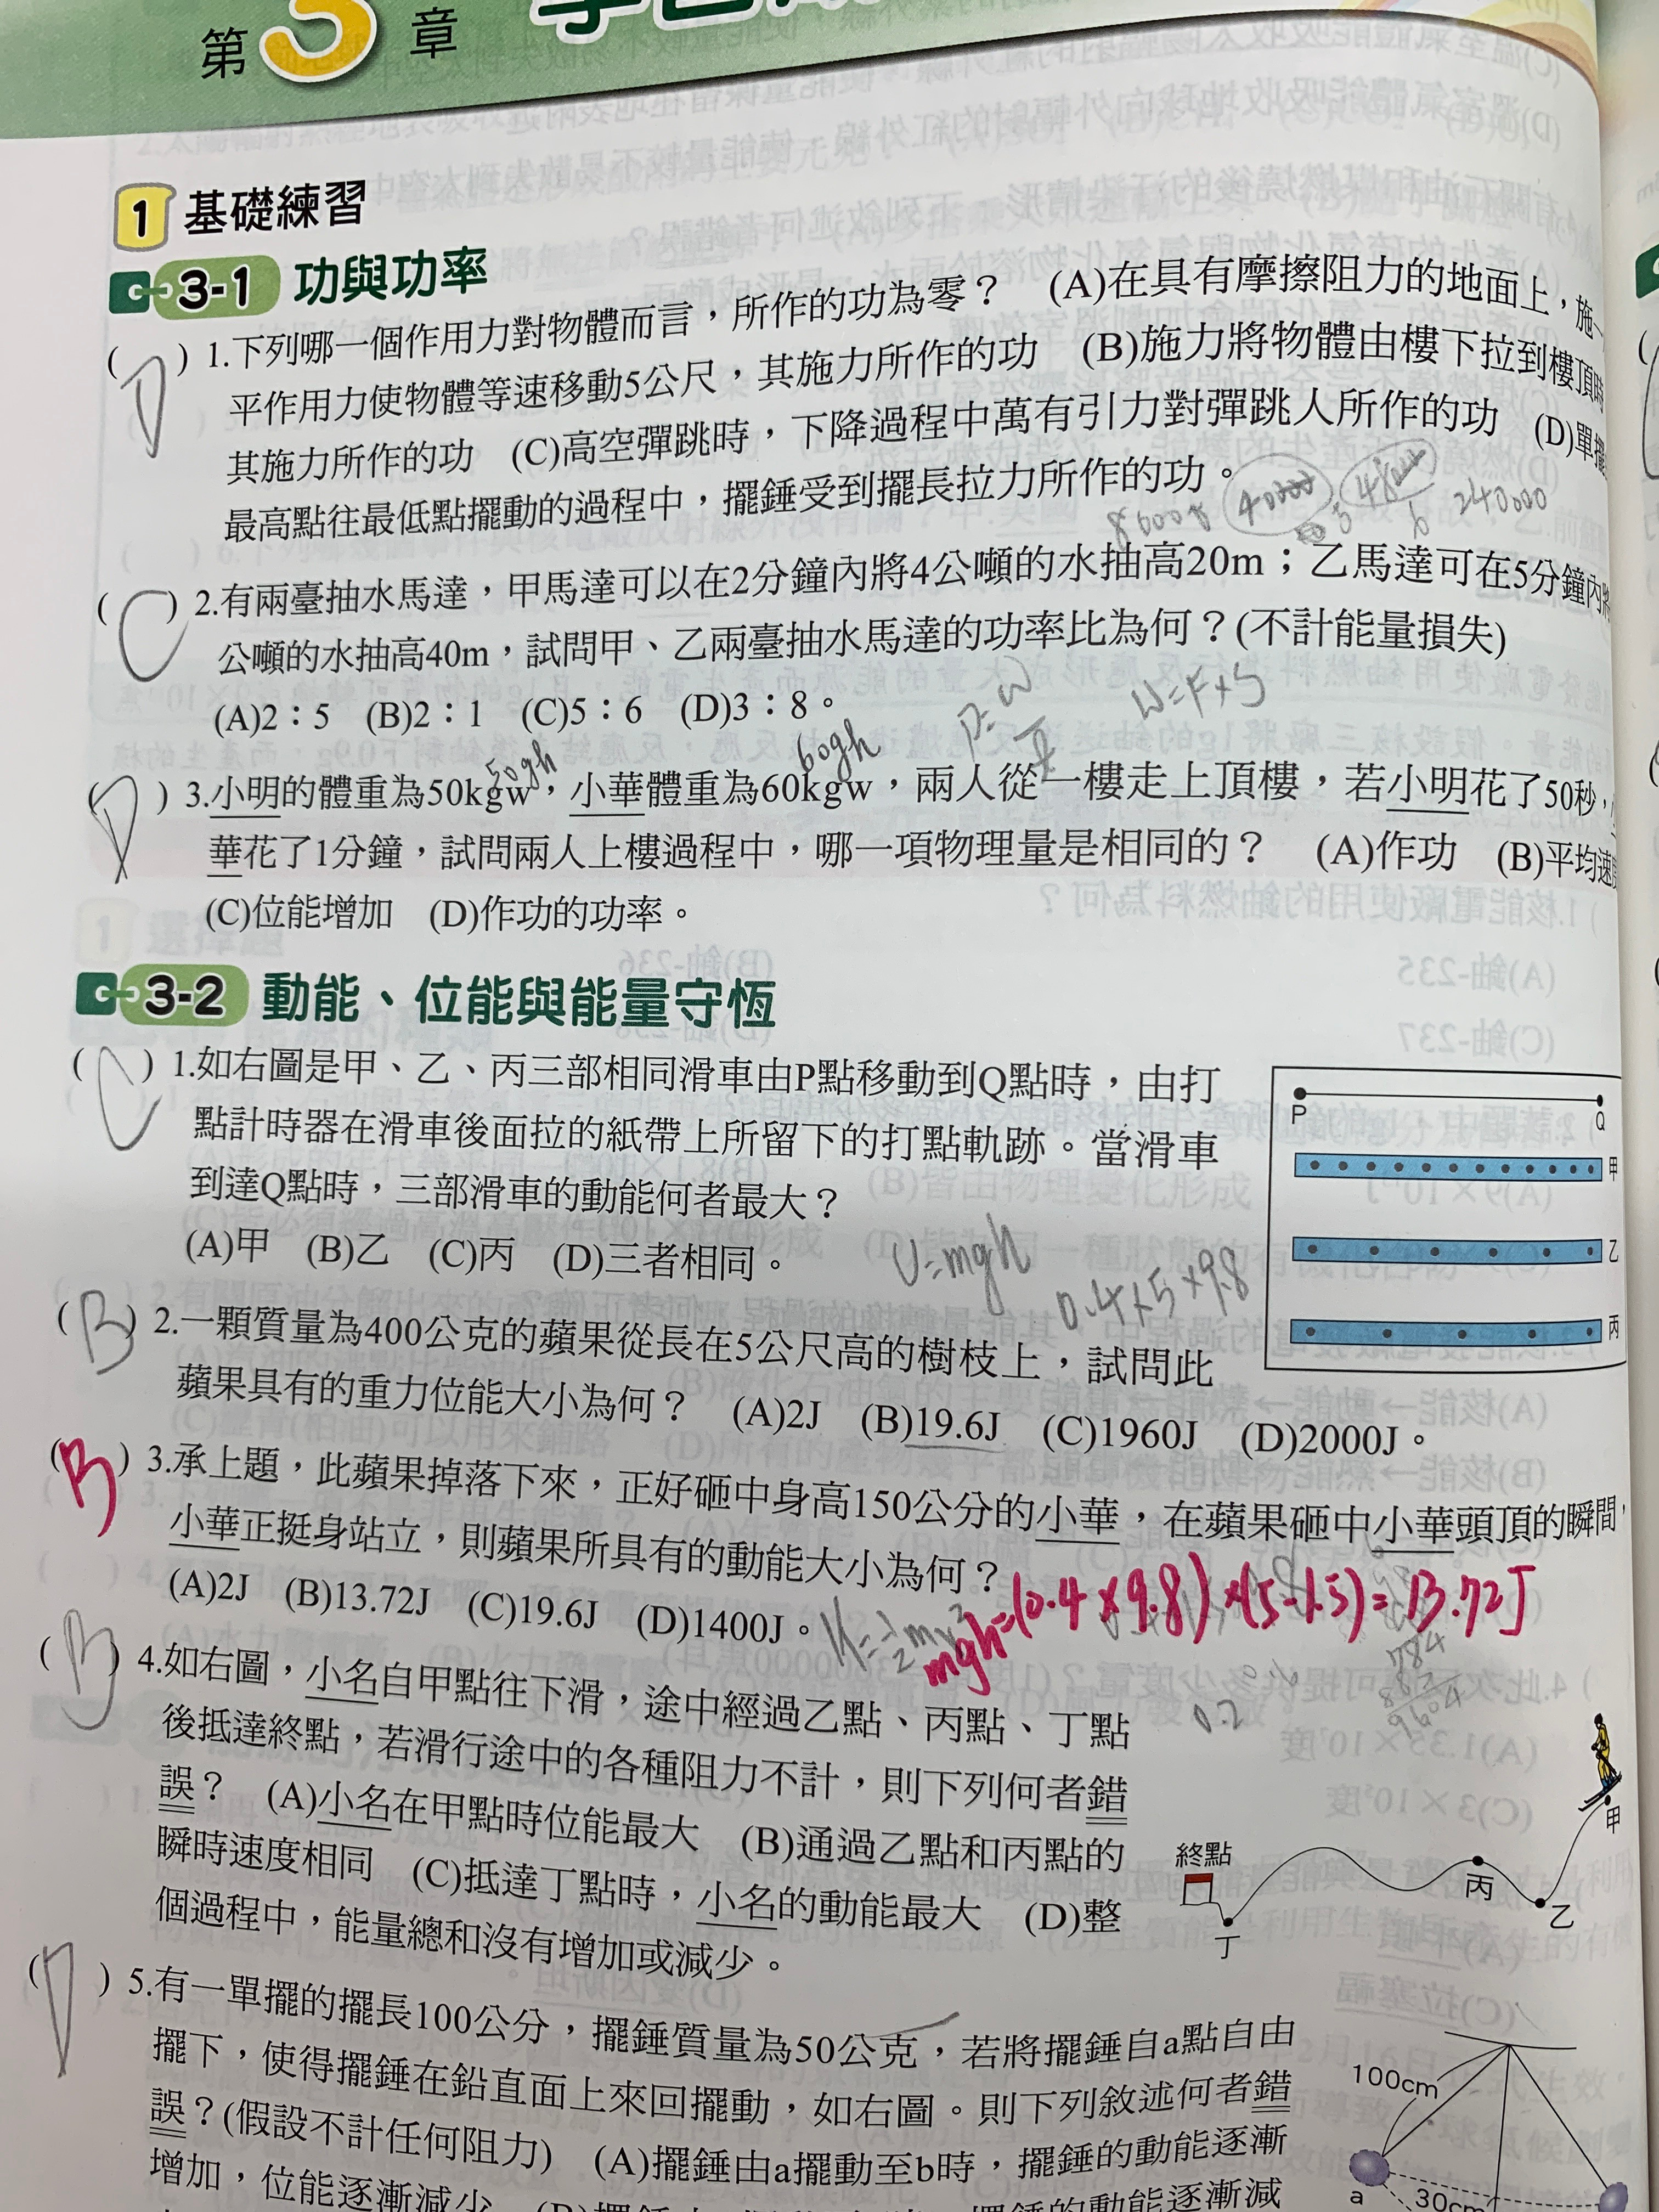 第3章
1 基礎練習
3-1 功與功率
(D) 1.下列哪一個作用力對物體而言，所作的功為零？ (A)在具有摩擦阻力的地面上，施一
平作用力使物體等速移動5公尺，其施力所作的功 (B)施力將物體由樓下拉到樓頂時
其施力所作的功 (C)高空彈跳時，下降過程中萬有引力對彈跳人所作的功 (D)單擺
最高點往最低點擺動的過程中，擺錘受到擺長拉力所作的功。
240000
(C) 2.有兩臺抽水馬達，甲馬達可以在2分鐘內將4公噸的水抽高20m；乙馬達可在5分鐘內將
公噸的水抽高40m，試問甲、乙兩臺抽水馬達的功率比為何？(不計能量損失)
(A)2：5 (B)2：1 (C)5：6 (D)3：8。
P=W/t W=F×S
50gh 60gh
(D) 3.小明的體重為50kgw，小華體重為60kgw，兩人從一樓走上頂樓，若小明花了50秒，小
華花了1分鐘，試問兩人上樓過程中，哪一項物理量是相同的？ (A)作功 (B)平均速度
(C)位能增加 (D)作功的功率。
3-2 動能、位能與能量守恆
(C) 1.如右圖是甲、乙、丙三部相同滑車由P點移動到Q點時，由打
點計時器在滑車後面拉的紙帶上所留下的打點軌跡。當滑車
到達Q點時，三部滑車的動能何者最大？
(A)甲 (B)乙 (C)丙 (D)三者相同。
P Q
甲
乙
丙
U=mgh 0.4×5×9.8
(B) 2.一顆質量為400公克的蘋果從長在5公尺高的樹枝上，試問此
蘋果具有的重力位能大小為何？ (A)2J (B)19.6J (C)1960J (D)2000J。
(B) 3.承上題，此蘋果掉落下來，正好砸中身高150公分的小華，在蘋果砸中小華頭頂的瞬間，
小華正挺身站立，則蘋果所具有的動能大小為何？
(A)2J (B)13.72J (C)19.6J (D)1400J。
K=1/2mv²
mgh=(0.4×9.8)×(5-1.5)=13.72J
784
882
9604
0.2
(B) 4.如右圖，小名自甲點往下滑，途中經過乙點、丙點、丁點
後抵達終點，若滑行途中的各種阻力不計，則下列何者錯
誤？ (A)小名在甲點時位能最大 (B)通過乙點和丙點的
瞬時速度相同 (C)抵達丁點時，小名的動能最大 (D)整
個過程中，能量總和沒有增加或減少。
甲
終點
丙
乙
丁
(D) 5.有一單擺的擺長100公分，擺錘質量為50公克，若將擺錘自a點自由
擺下，使得擺錘在鉛直面上來回擺動，如右圖。則下列敘述何者錯
誤？(假設不計任何阻力) (A)擺錘由a擺動至b時，擺錘的動能逐漸
增加，位能逐漸減少
100cm
a
30cm